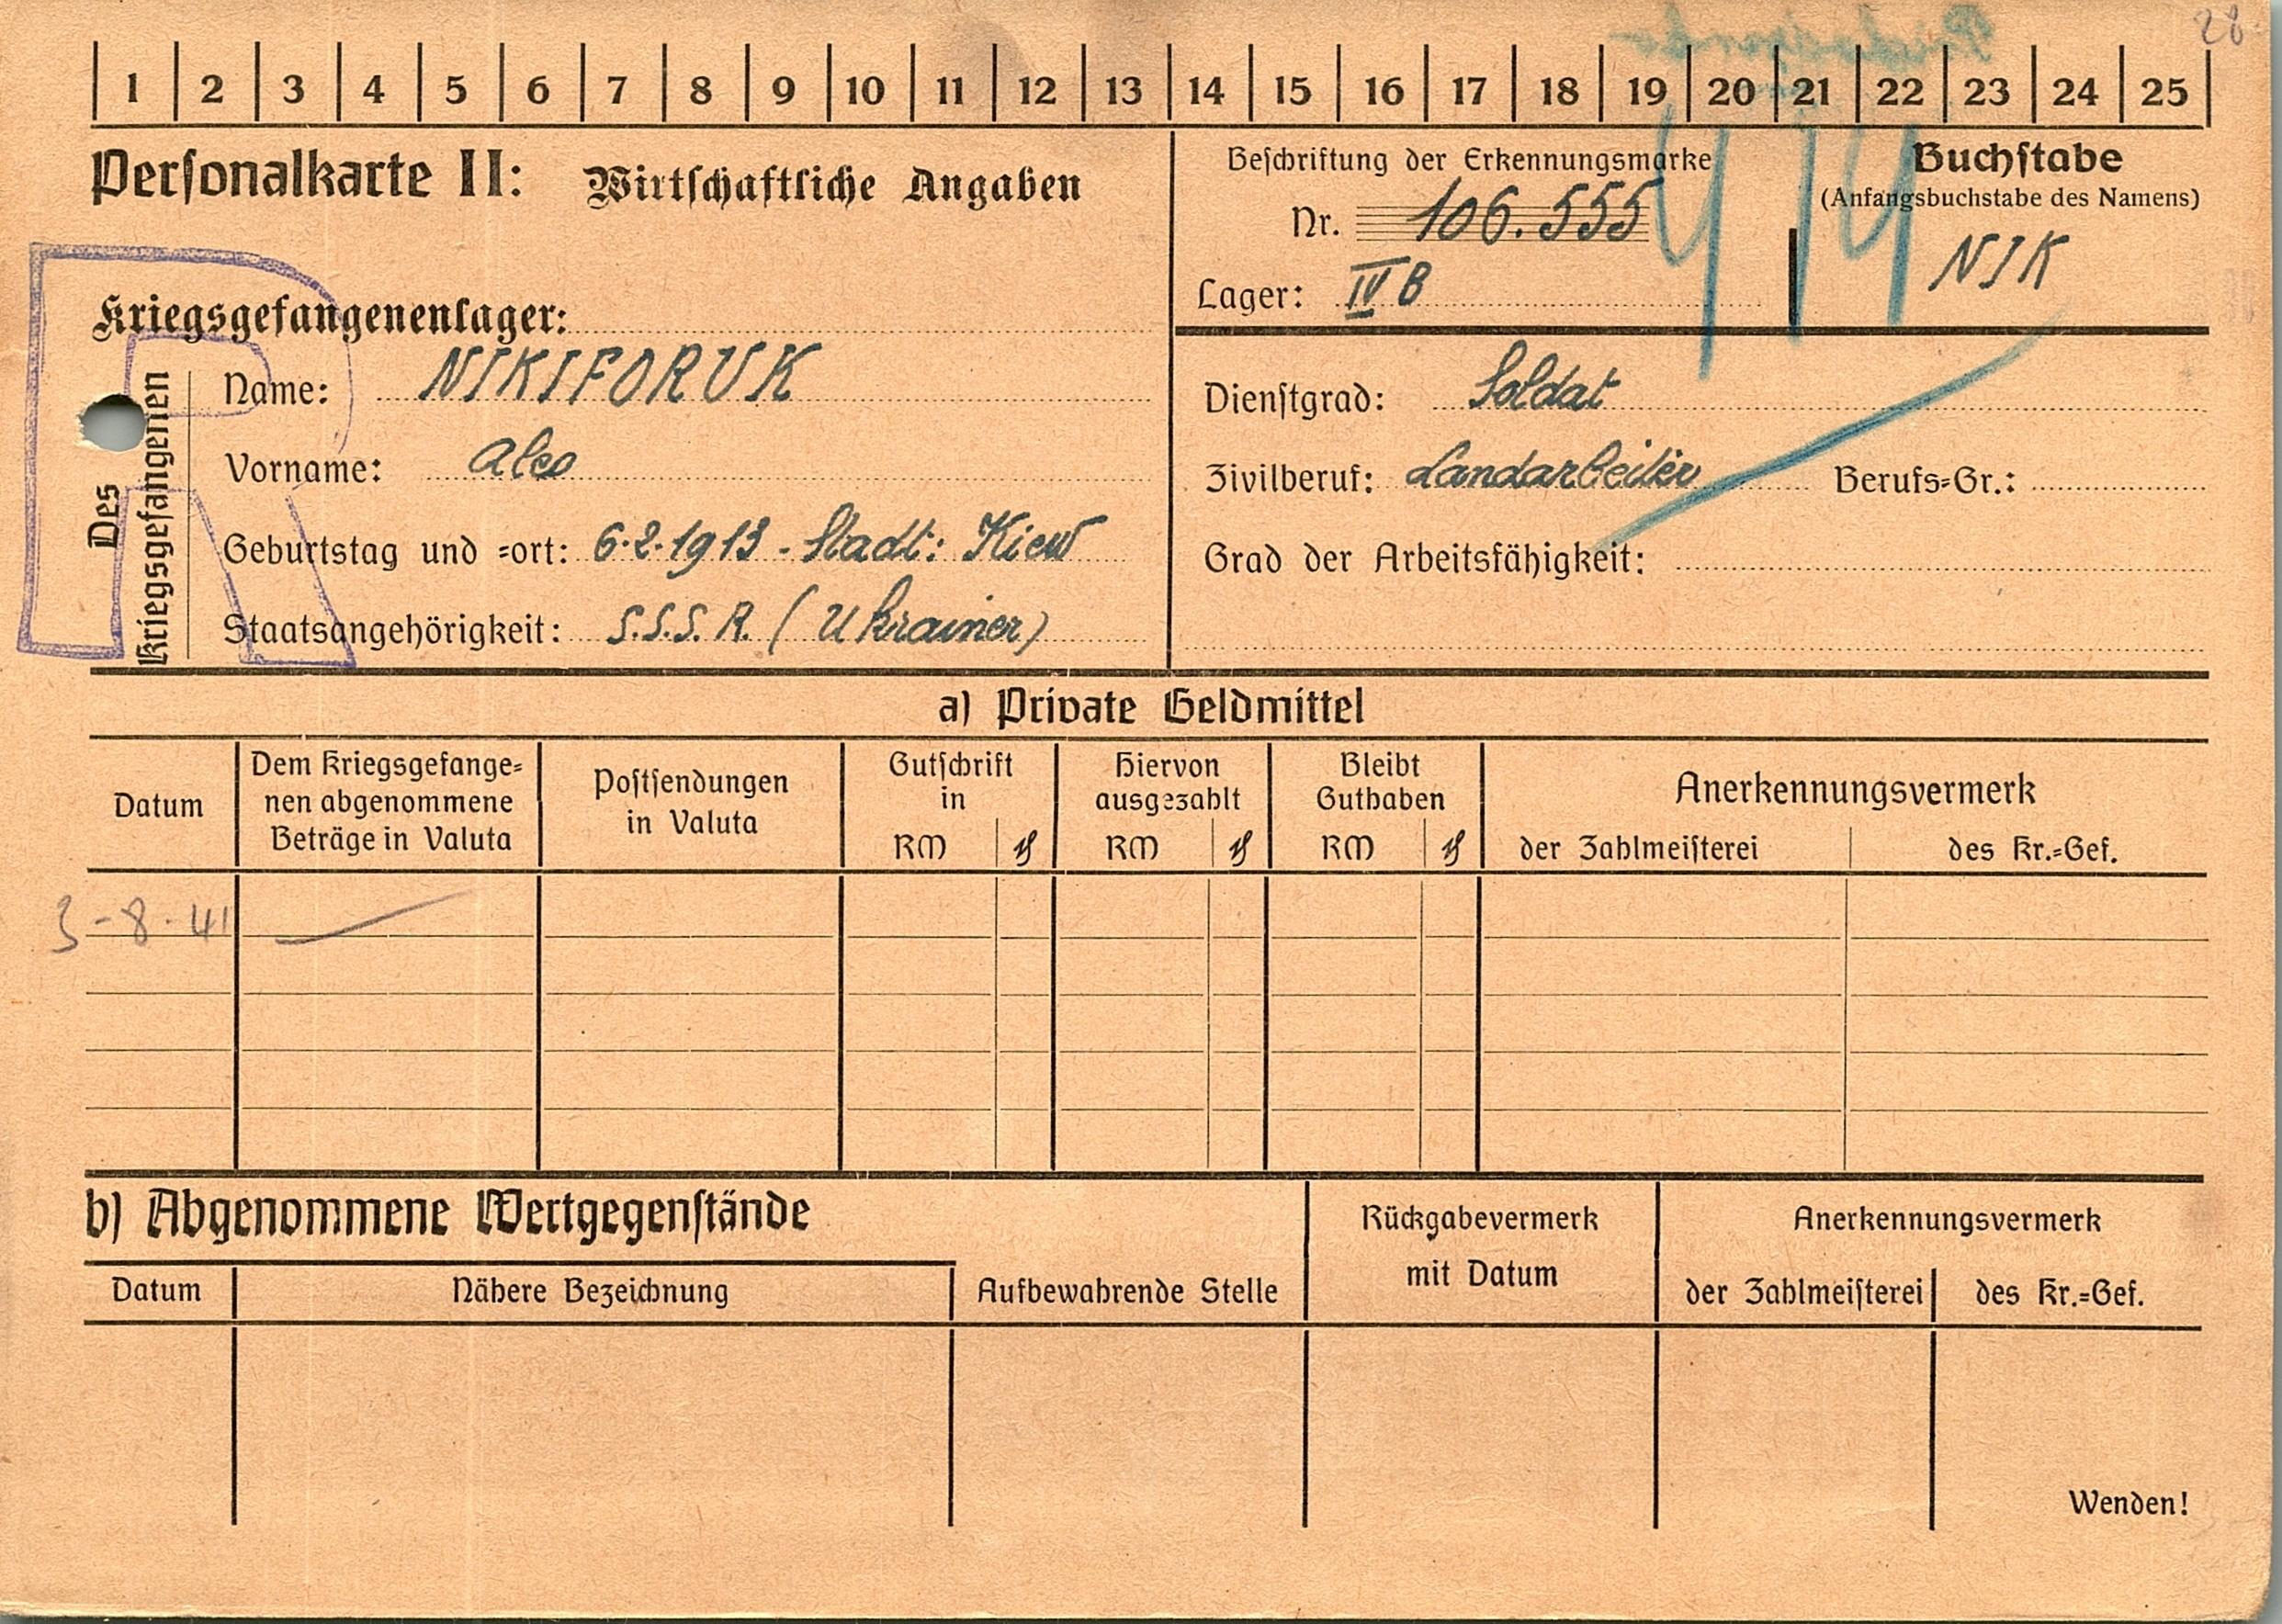 28.
1 2 3 4 5 6 7 8 9 10 11 12 13 14 15 16 17 18 19 20 21 22 23 24 25
Personalkarte II: Wirtschaftliche Angaben
Beschriftung der Erkennungsmarke
Nr. 106.555
Lager: IV B
Buchstabe
(Anfangsbuchstabe des Namens)
NIK
Kriegsgefangenenlager:
Des Kriegsgefangenen
Name: NIKIFORUK
Vorname: Aleo
Geburtstag und =ort: 6.2.1913 - Stadt: Kiew
Staatsangehörigkeit: S.S.S.R. (Ukrainer)
Dienstgrad: Soldat
Zivilberuf: Landarbeiter Berufs=Gr.:
Grad der Arbeitsfähigkeit:
a) Private Geldmittel
Datum
Dem Kriegsgefange=
nen abgenommene
Beträge in Valuta
Postsendungen
in Valuta
Gutschrift
in
RM ₰
Hiervon
ausgezahlt
RM ₰
Bleibt
Guthaben
RM ₰
Anerkennungsvermerk
der Zahlmeisterei des Kr.=Gef.
3-8-41
b) Abgenommene Wertgegenstände
Datum Nähere Bezeichnung Aufbewahrende Stelle
Rückgabevermerk
mit Datum
Anerkennungsvermerk
der Zahlmeisterei des Kr.=Gef.
Wenden!